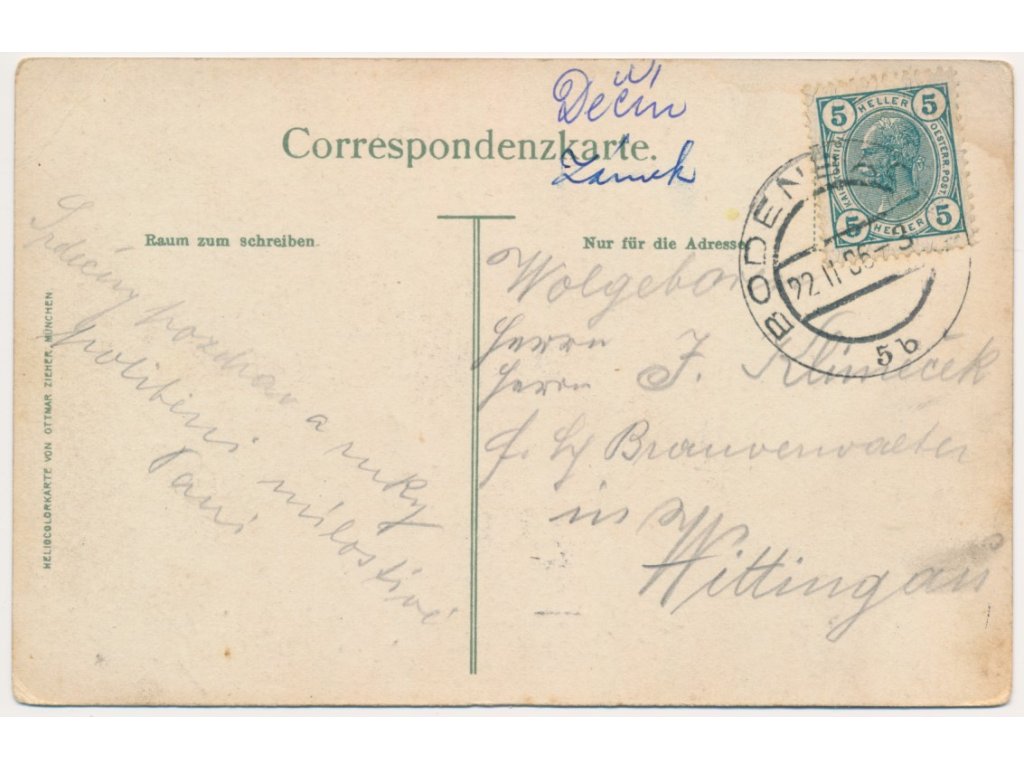 Děčín
Zámek
Correspondenzkarte.
Raum zum schreiben
Nur für die Adresse
HELIOCOLORKARTE VON OTTMAR ZIEHER, MÜNCHEN
Srdečný pozdrav a ruky
políbení milostivé
Paní
Wolgebor
Herrn
Herrn J. Klimeček
Brauverwalter
in
Wittingau
5 HELLER 5
KAIS. KÖNIGL. OESTERR. POST.
5 HELLER 5
BODEN
22 II 06
5b